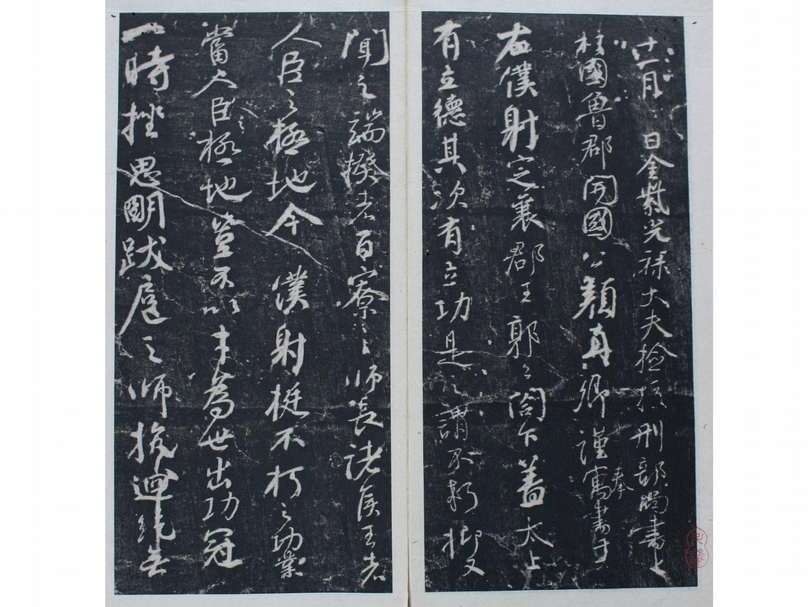 十一月日金紫光祿大夫撿挍刑部尚書上
柱國魯郡開國公顏真卿謹奉寓書于
右僕射定襄郡王郭公閤下蓋太上
有立德其次有立功是之謂不朽抑又
聞之端揆者百寮之師長諸侯王者
人臣之極地今僕射挺不朽之功業
當人臣極地豈不以才為世出功冠
一時挫思明跋扈之師抗迴紇無